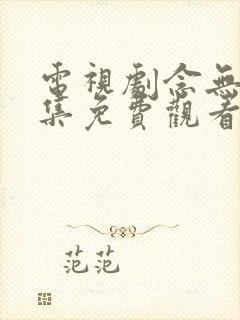 電視劇念無
集免費觀看
范范